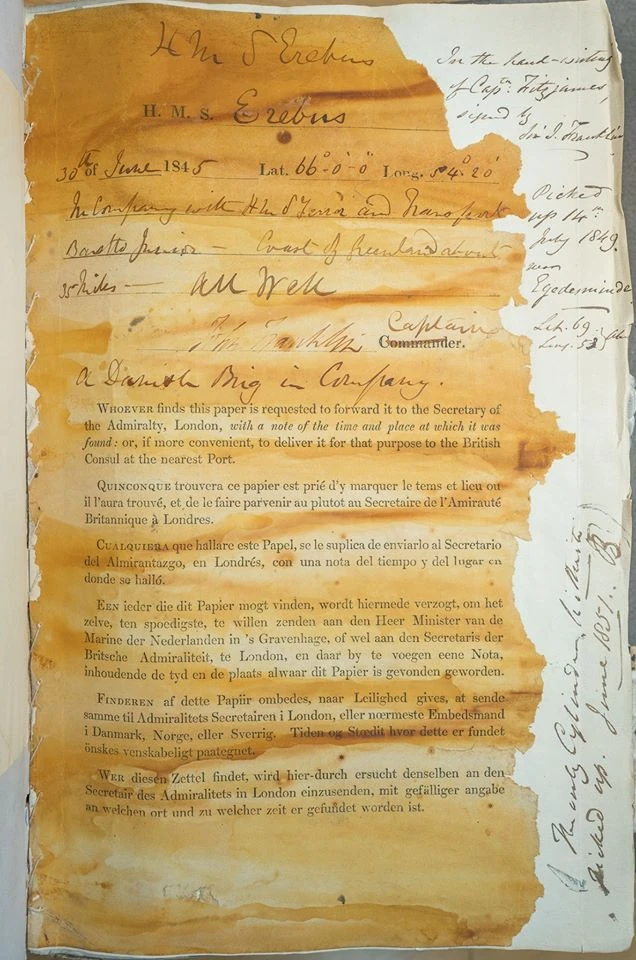 H M S Erebus
H. M. S. Erebus
30th of June 1845 Lat. 66°-0'-0" Long. 54° 20'
In Company with H M S Terror and Transport
Barretto Junior — Coast of Greenland about
35 Miles — All Well
Captain
Commander.
a Danish Brig in Company.
WHOEVER finds this paper is requested to forward it to the Secretary of
the Admiralty, London, with a note of the time and place at which it was
found: or, if more convenient, to deliver it for that purpose to the British
Consul at the nearest Port.
QUINCONQUE trouvera ce papier est prié d'y marquer le tems et lieu ou
il l'aura trouvé, et de le faire parvenir au plutot au Secretaire de l'Amirauté
Britannique à Londres.
CUALQUIERA que hallare este Papel, se le suplica de enviarlo al Secretario
del Almirantazgo, en Londrés, con una nota del tiempo y del lugar en
donde se halló.
EEN ieder die dit Papier mogt vinden, wordt hiermede verzogt, om het
zelve, ten spoedigste, te willen zenden aan den Heer Minister van de
Marine der Nederlanden in 's Gravenhage, of wel aan den Secretaris der
Britsche Admiraliteit, te London, en daar by te voegen eene Nota,
inhoudende de tyd en de plaats alwaar dit Papier is gevonden geworden.
FINDEREN af dette Papiir ombedes, naar Leilighed gives, at sende
samme til Admiralitets Secretairen i London, eller nœrmeste Embedsmand
i Danmark, Norge, eller Sverrig. Tiden og Stœdit hvor dette er fundet
önskes venskabeligt paategnet.
WER diesen Zettel findet, wird hier-durch ersucht denselben an den
Secretair des Admiralitets in London einzusenden, mit gefälliger angabe
an welchen ort und zu welcher zeit er gefundet worden ist.
In the hand-writing
of Captn. Fitzjames,
signed by
Sir J. Franklin
Picked
up 14th
July 1849.
near
Egedesminde
Lat. 69.
Long. 53
The only Cylinder, hitherto
picked up. June 1851.